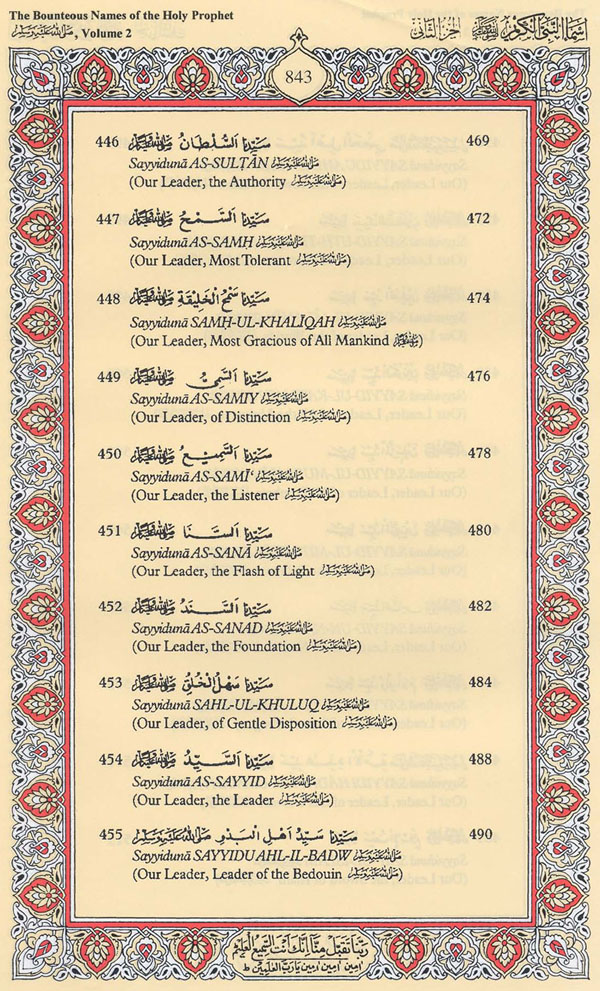 The Bounteous Names of the Holy Prophet
ﷺ, Volume 2
الجزء الثاني
843
446 سَيِّدُنَا اَلسُّلْطَانُ ﷺ 469
Sayyidunā AS-SULTĀN ﷺ
(Our Leader, the Authority ﷺ)
447 سَيِّدُنَا اَلسَّمْحُ ﷺ 472
Sayyidunā AS-SAMḤ ﷺ
(Our Leader, Most Tolerant ﷺ)
448 سَيِّدُنَا سَمْحُ الْخَلِيْقَةِ ﷺ 474
Sayyidunā SAMḤ-UL-KHALĪQAH ﷺ
(Our Leader, Most Gracious of All Mankind ﷺ)
449 سَيِّدُنَا اَلسَّمِيُّ ﷺ 476
Sayyidunā AS-SAMIY ﷺ
(Our Leader, of Distinction ﷺ)
450 سَيِّدُنَا اَلسَّمِيْعُ ﷺ 478
Sayyidunā AS-SAMĪ‘ ﷺ
(Our Leader, the Listener ﷺ)
451 سَيِّدُنَا اَلسَّنَا ﷺ 480
Sayyidunā AS-SANĀ ﷺ
(Our Leader, the Flash of Light ﷺ)
452 سَيِّدُنَا اَلسَّنَدُ ﷺ 482
Sayyidunā AS-SANAD ﷺ
(Our Leader, the Foundation ﷺ)
453 سَيِّدُنَا سَهْلُ الْخُلُقِ ﷺ 484
Sayyidunā SAHL-UL-KHULUQ ﷺ
(Our Leader, of Gentle Disposition ﷺ)
454 سَيِّدُنَا اَلسَّيِّدُ ﷺ 488
Sayyidunā AS-SAYYID ﷺ
(Our Leader, the Leader ﷺ)
455 سَيِّدُنَا سَيِّدُ اَهْلِ الْبَدْوِ ﷺ 490
Sayyidunā SAYYIDU AHL-IL-BADW ﷺ
(Our Leader, Leader of the Bedouin ﷺ)
رَبَّنَا تَقَبَّلْ مِنَّا اِنَّكَ اَنْتَ السَّمِيْعُ الْعَلِيْمُ
اٰمِيْن اٰمِيْن اٰمِيْن يَا رَبَّ الْعٰلَمِيْنَ ط